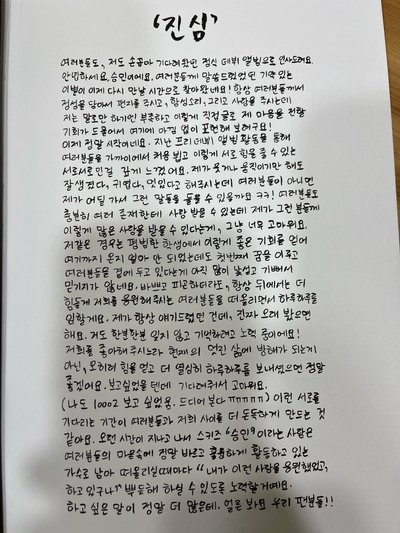 '진심'
여러분들도, 저도 손꼽아 기다려왔던 정식 데뷔 앨범으로 인사드려요.
안녕하세요. 승민이에요. 여러분들께 말씀드렸었던 기약 있는
이별이 이제 다시 만날 시간으로 찾아왔네요! 항상 여러분들께서
정성을 담아서 편지를 주시고, 함성소리, 그리고 사랑을 주시는데
저는 말로만 하기엔 부족하고 이렇게 직접 글로 제 마음을 전할
기회가 드물어서 여기에 아낌 없이 표현해 보려구요!
이제 정말 시작이네요. 지난 프리데뷔 앨범 활동을 통해
여러분들을 가까이에서 처음 뵙고 이렇게 서로 힘을 줄 수 있는
서로서로인걸 깊게 느꼈어요. 제가 웃거나 움직이기만 해도
잘생겼다, 귀엽다, 멋있다고 해주시는데 여러분들이 아니면
제가 어딜 가서 그런 말들을 들을 수 있을까요 ㅋㅋ! 여러분들도
충분히 여러 존재한테 사랑 받을 수 있는데 제가 그런 분들께
이렇게 많은 사랑을 받을 수 있다는게, 그냥 너무 고마워요.
저같은 경우는 평범한 학생에서 이렇게 좋은 기회를 얻어
여기까지 온지 얼마 안 되었는데도 첫번째 꿈을 이루고
여러분들을 곁에 두고 있다는게 아직 많이 낯설고 기뻐서
믿기지가 않네요. 바쁘고 피곤하더라도, 항상 뒤에서는 더
힘들게 저희를 응원해주시는 여러분들을 떠올리면서 하루하루를
임할게요. 제가 항상 얘기드렸던 건데, 진짜 오래 봤으면
해요. 저도 한분한분 잊지 않고 기억하려고 노력 중이에요!
저희를 좋아해 주시느라 현재의 멋진 삶에 방해가 되는게
아닌, 오히려 힘을 얻고 더 열심히 하루하루를 보내셨으면 정말
좋겠어요. 보고싶었을 텐데 기다려주셔서 고마워요.
(나도 1000z 보고 싶었음. 드디어 본다 ㅠㅠㅠㅠㅠ) 이런 서로를
기다리는 기간이 여러분들과 저희 사이를 더 돈독하게 만드는 것
같아요. 오랜 시간이 지나고 나서 스키즈 "승민"이라는 사람은
여러분들의 마음속에 정말 바르고 훌륭하게 활동하고 있는
가수로 남아 떠올리실때마다 "내가 이런 사람을 응원했었고,
하고 있구나" 뿌듯해 하실 수 있도록 노력할거예요.
하고 싶은 말이 정말 더 많은데. 얼른 봐요 우리 팬분들!!